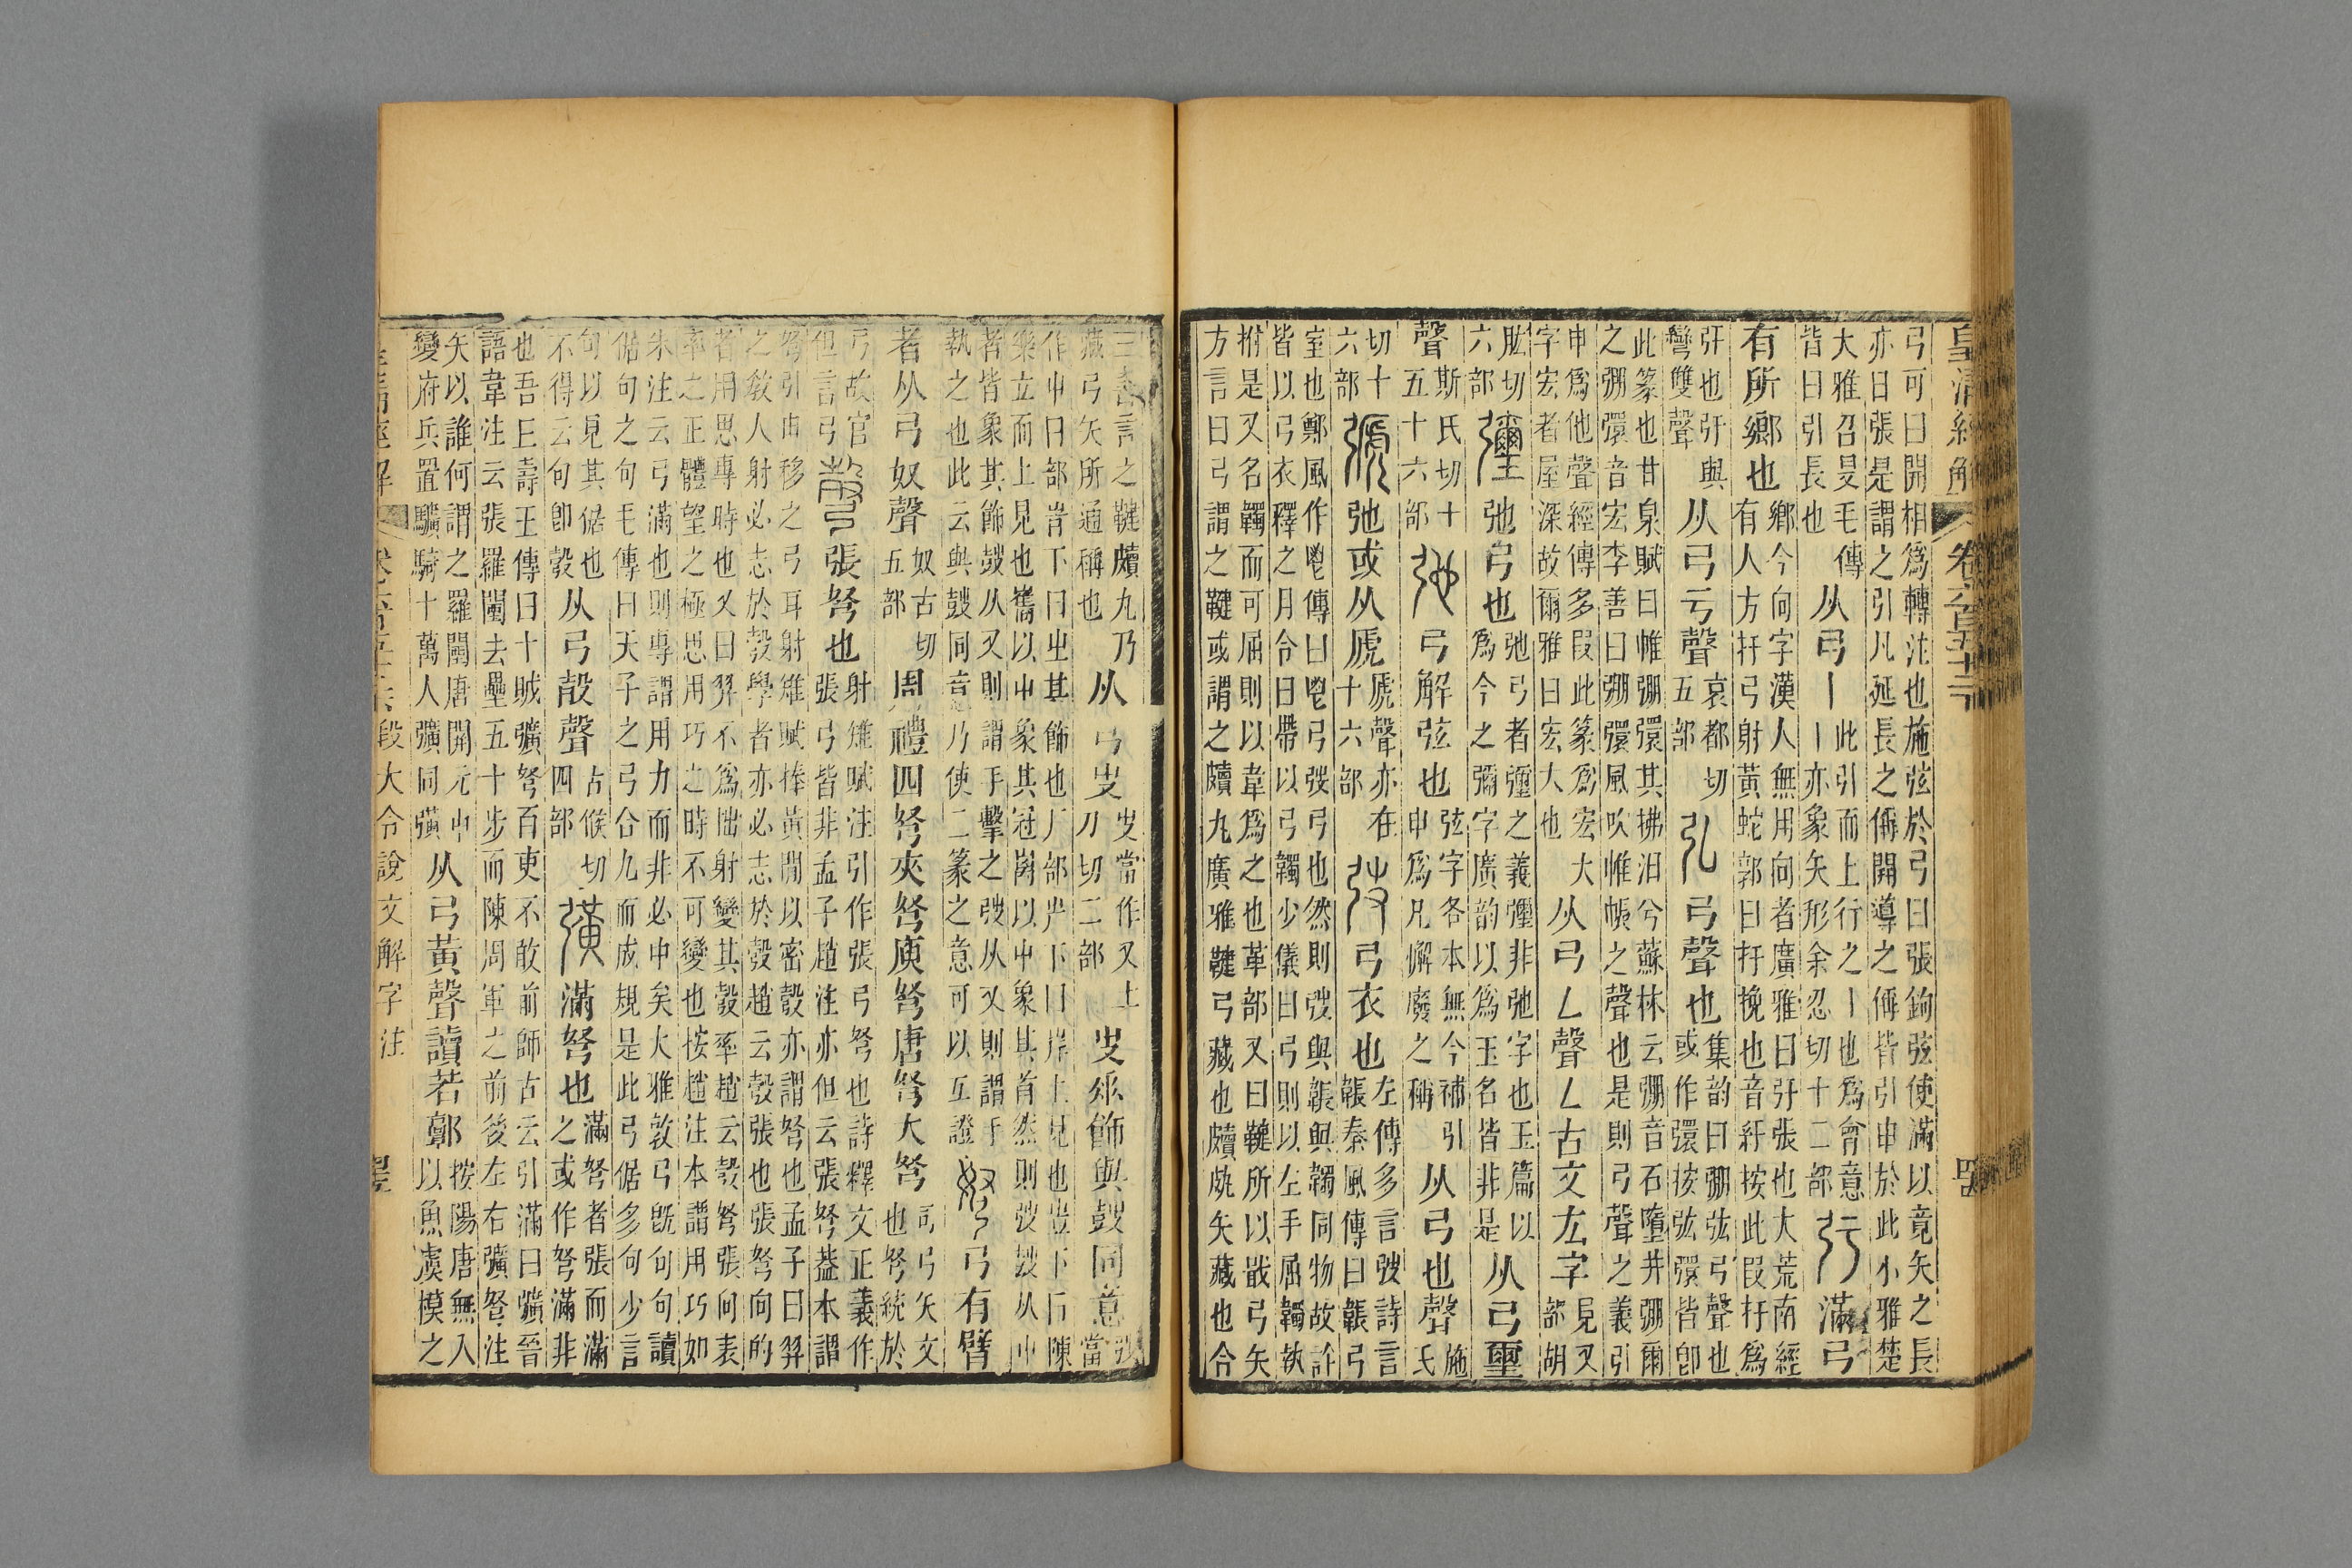 弓可曰開相為轉注也施弦於弓曰張鉤弦使滿以竟矢之長
亦曰張是謂之引凡延長之偁開導之偁皆引申於此小雅楚
大雅召旻毛傳皆曰引長也从弓丨此引而上行之丨也為會意丨亦象矢形余忍切十二部滿弓
有所鄉也鄉今向字漢人無用向者廣雅曰弙張也大荒南經有人方扜弓射黃蛇郭曰扜挽也音紆按此叚扜為
弙也弙與彎雙聲从弓亏聲哀都切五部弘弓聲也集韵曰弸弦弓聲也或作彋按弦彋皆卽
此篆也甘泉賦曰帷弸彋其拂汨兮蘇林云弸音石墮井弸爾
之弸彋音宏李善曰弸彋風吹帷帳之聲也是則弓聲之義引
申為他聲經傳多叚此篆為宏大字宏者屋深故爾雅曰宏大也从弓厶聲厶古文厷字見又部胡
肱切六部弛弓也弛弓者彌之義彌非弛字也玉篇以為今之彌字廣韵以為玉名皆非是从弓璽
聲斯氏切十五十六部弛弓解弦也弦字各本無今補引申為凡懈廢之稱从弓也聲施氏
切十六部弛或从虒虒聲亦在十六部弢弓衣也左傳多言弢詩言韔秦風傳曰韔弓
室也鄭風作鬯傳曰鬯弓弢弓也然則弢與韔與韣同物故許
皆以弓衣釋之月令曰帶以弓韣少儀曰弓則以左手屈韣執
拊是又名韣而可屈則以韋為之也革部又曰鞬所以戢弓矢
方言曰弓謂之鞬或謂之皾丸廣雅鞬弓藏也皾㿺矢藏也合
三書言之鞬皾丸乃藏弓矢所通稱也从弓
飾與鼓同意
樂立而上見也
者皆象其飾鼓从又則謂手擊之弢从又則謂手
執之也此云與鼓同意乃使二篆之意可以互證弩弓有臂
者从弓奴聲奴古切五部周禮四弩夾弩庾弩唐弩大弩司弓矢文也弩統於
弓故官但言弓彀張弩也射雉賦注引作張弓弩也詩釋文正義作張弓皆非孟子趙注亦但云張弩葢本謂
弩引申移之弓耳射雉賦捧黃閒以密彀亦謂弩也孟子曰羿
之敎人射必志於彀學者亦必志於彀趙云彀張也張弩向的
者用思專時也又曰羿不為拙射變其彀率趙云彀弩張向表
率之正體望之極思用巧之時不可變也按趙注本謂用巧如
朱注云弓滿也則專謂用力而非必中矣大雅敦弓旣句句讀
倨句之句毛傳曰天子之弓合九而成規是此弓倨多句少言
句以見其倨也不得云句卽彀从弓㱿聲古候切四部彉滿弩也滿弩者張而滿之或作弩滿非
也吾丘壽王傳曰十賊彉弩百吏不敢前師古云引滿曰彉晉
語韋注云張羅闉去壘五十步而陳周軍之前後左右彉弩注
矢以誰何謂之羅闉唐開元中變府兵置驥騎十萬人彍同彉从弓黃聲讀若郭按陽唐無入以魚虞模之
皇清經解
段大令說文解字注